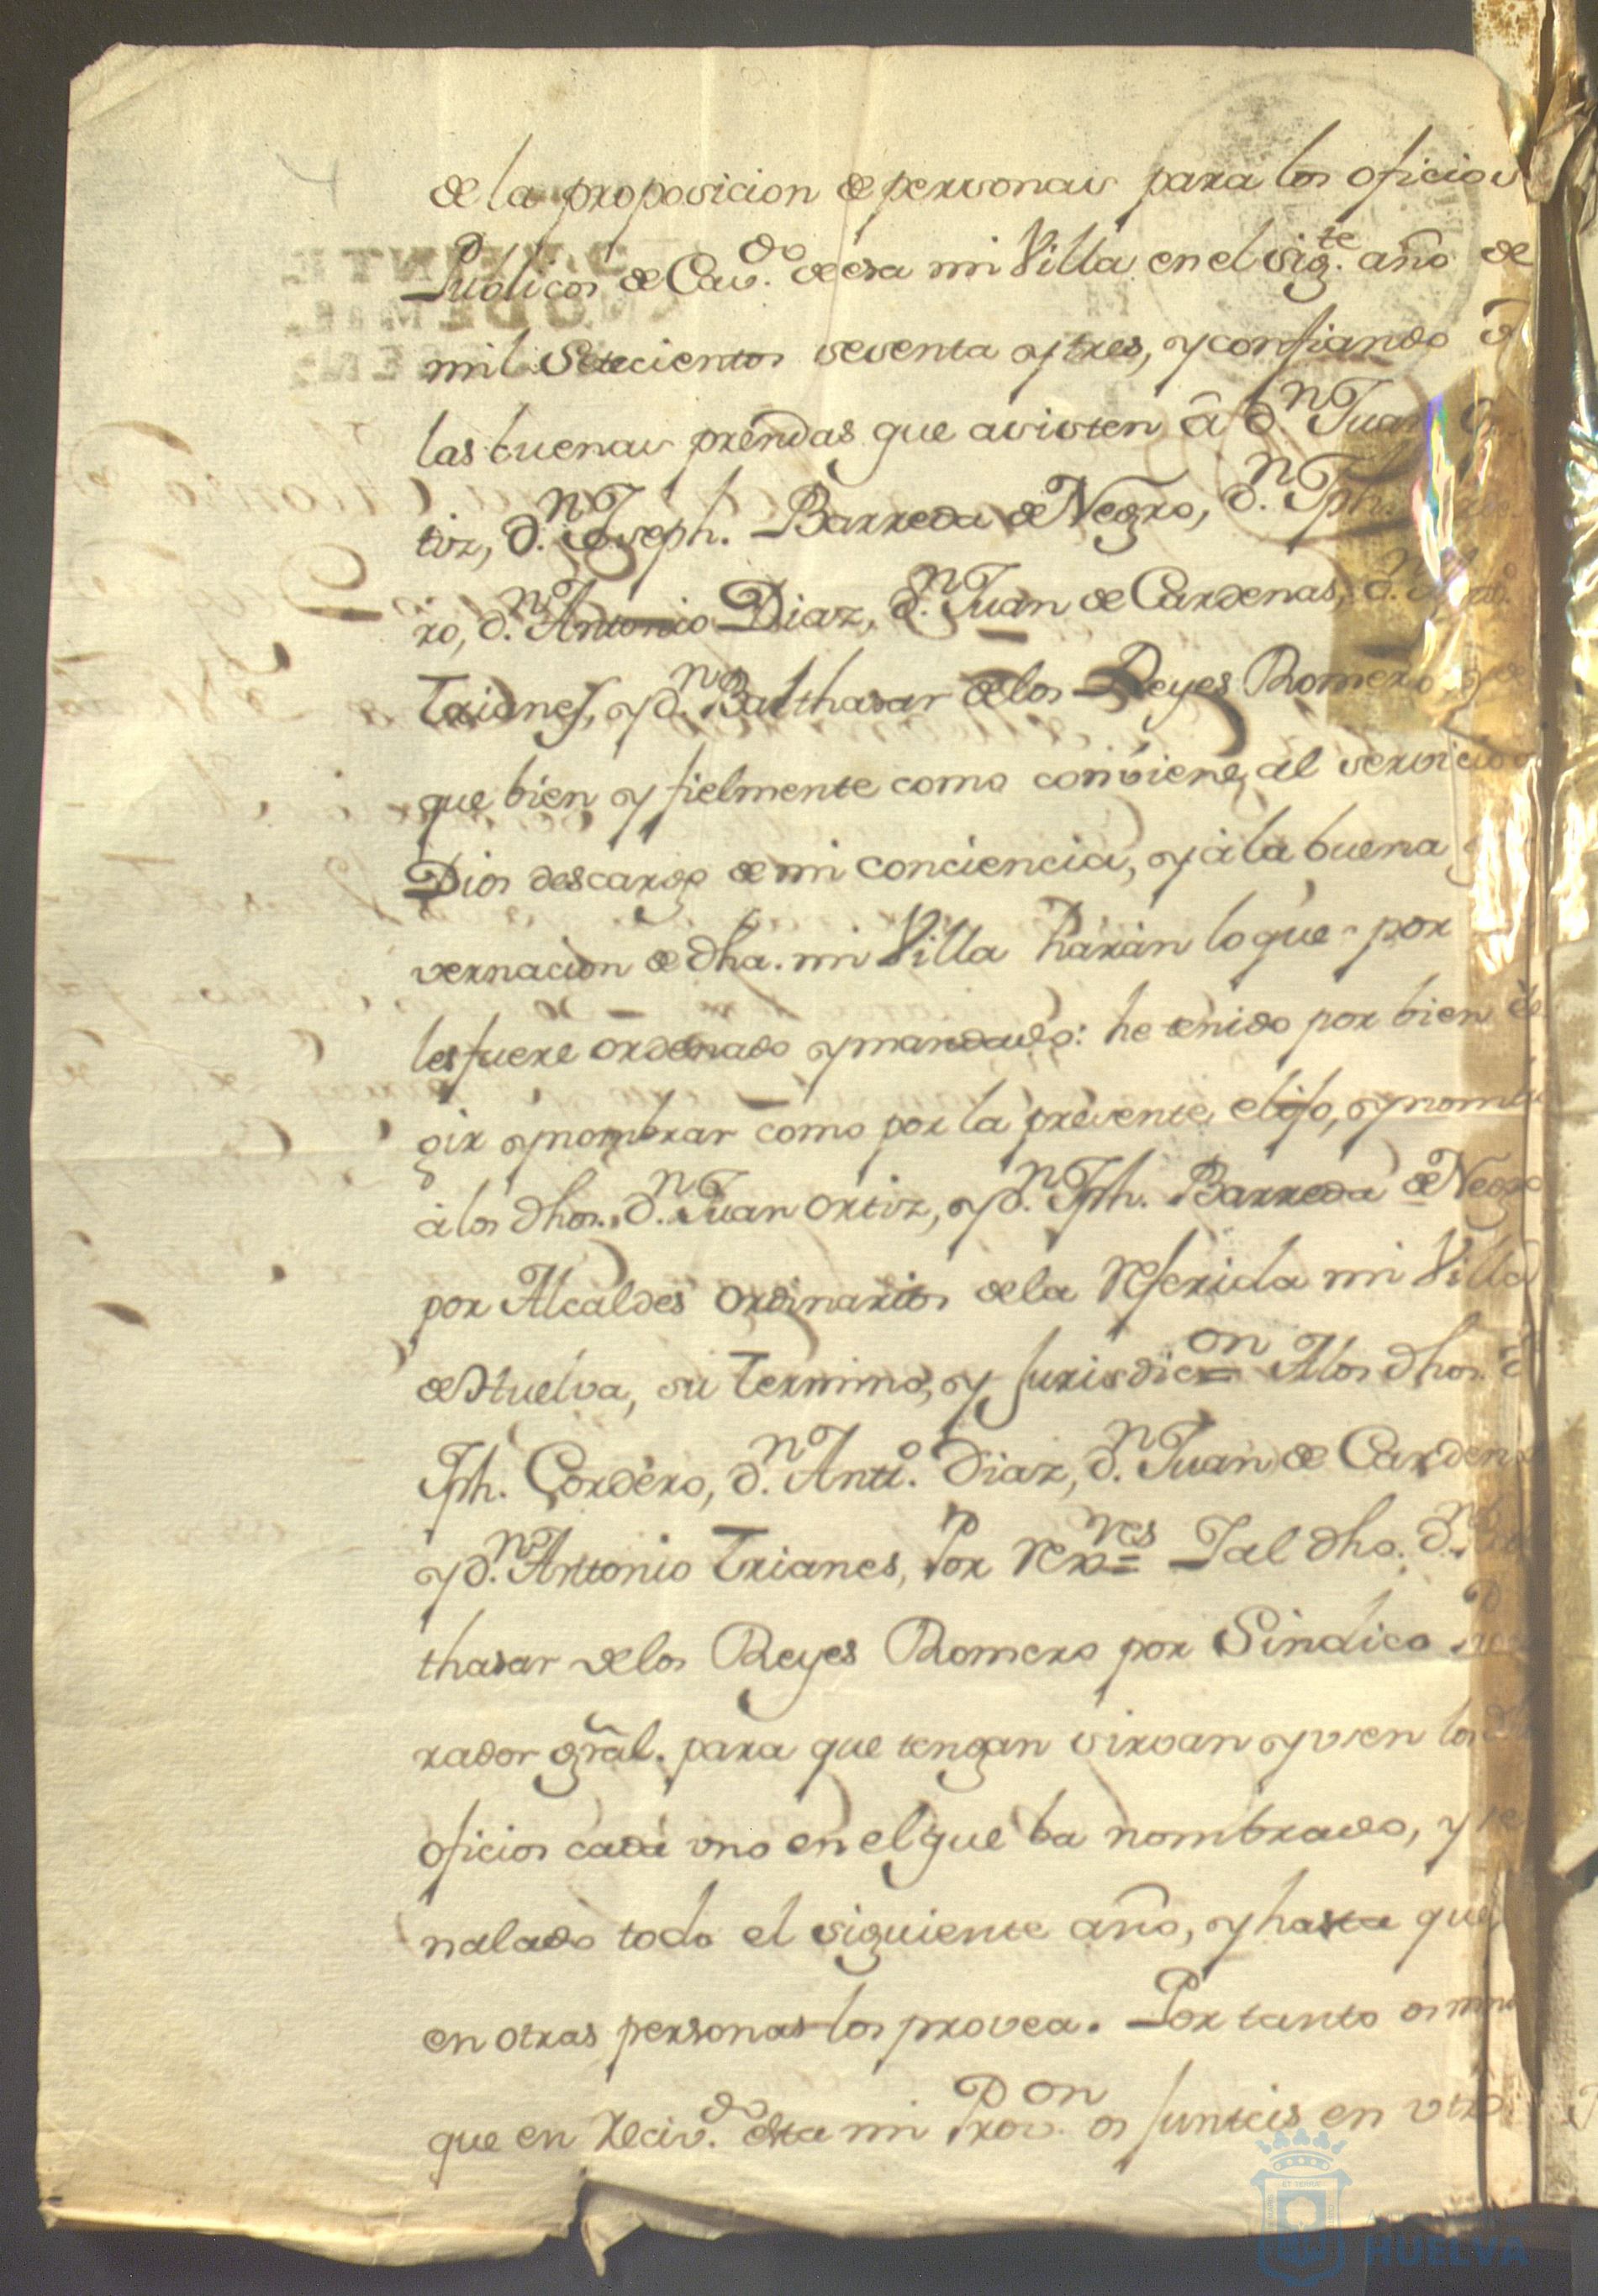 de la proposicion de personas para los oficios
Publicos de Cav.do de esa mi Villa en el sig.te año de
mil setecientos sesenta y tres, y confiando
las buenas prendas que asisten â d.n Juan Or
tiz, d.n Joseph. Barreda de Negro, d.n Jph.
ro, d.n Antonio Diaz, d.n Juan de Cardenas, d.n
Trianes, y d.n Balthasar de los Reyes Romero
que bien y fielmente como conviene al servicio
Dios descargo de mi conciencia, y â la buena
vernacion de dha. mi Villa harán lo que por
les fuere ordenado y mandado: he tenido por bien ele
gir y nombrar como por la presente elijo, y nombro
â los dhos. d.n Juan Ortiz, y d.n Jph. Barreda de Negro
por Alcaldes ordinarios de la referida mi Villa
de Huelva, su termino, y jurisdic.on = A los dhos. d
Jph. Cordero, d.n Ant.o Diaz, d.n Juan de Carden
y d.n Antonio Trianes, Por rex.res = Y al dho. d.n
thasar de los Reyes Romero por Sindico
rador grâl. para que tengan sirvan y usen los
oficios cada uno en el que ba nombrado, y se
nalado todo el siguiente año, y hasta que
en otras personas los provea. Por tanto os m
que en reciv.do esta mi Prov.on os junteis en vtro
HUELVA